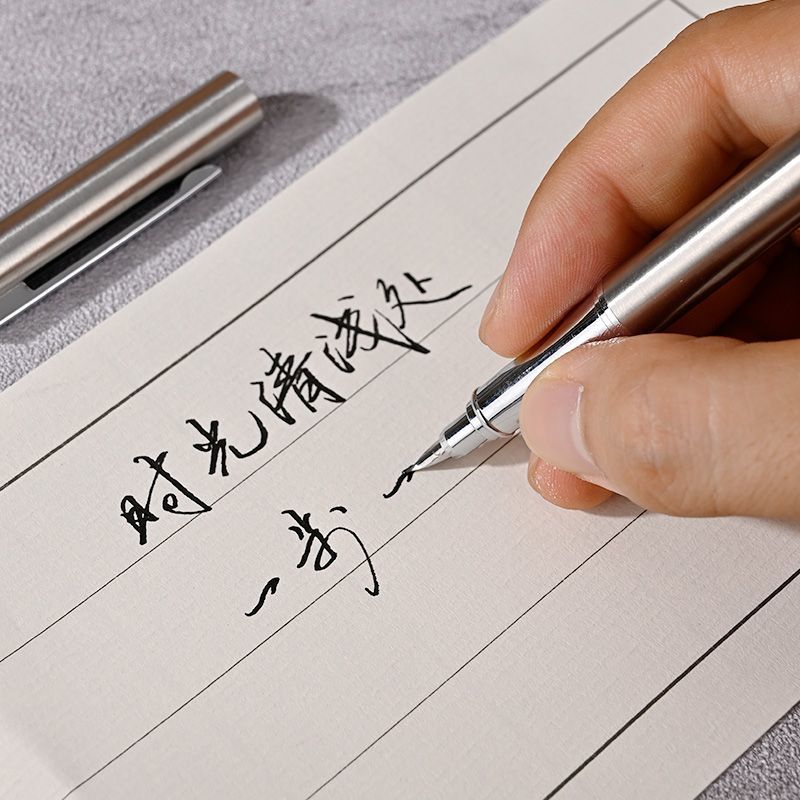 时光清浅处
一步一